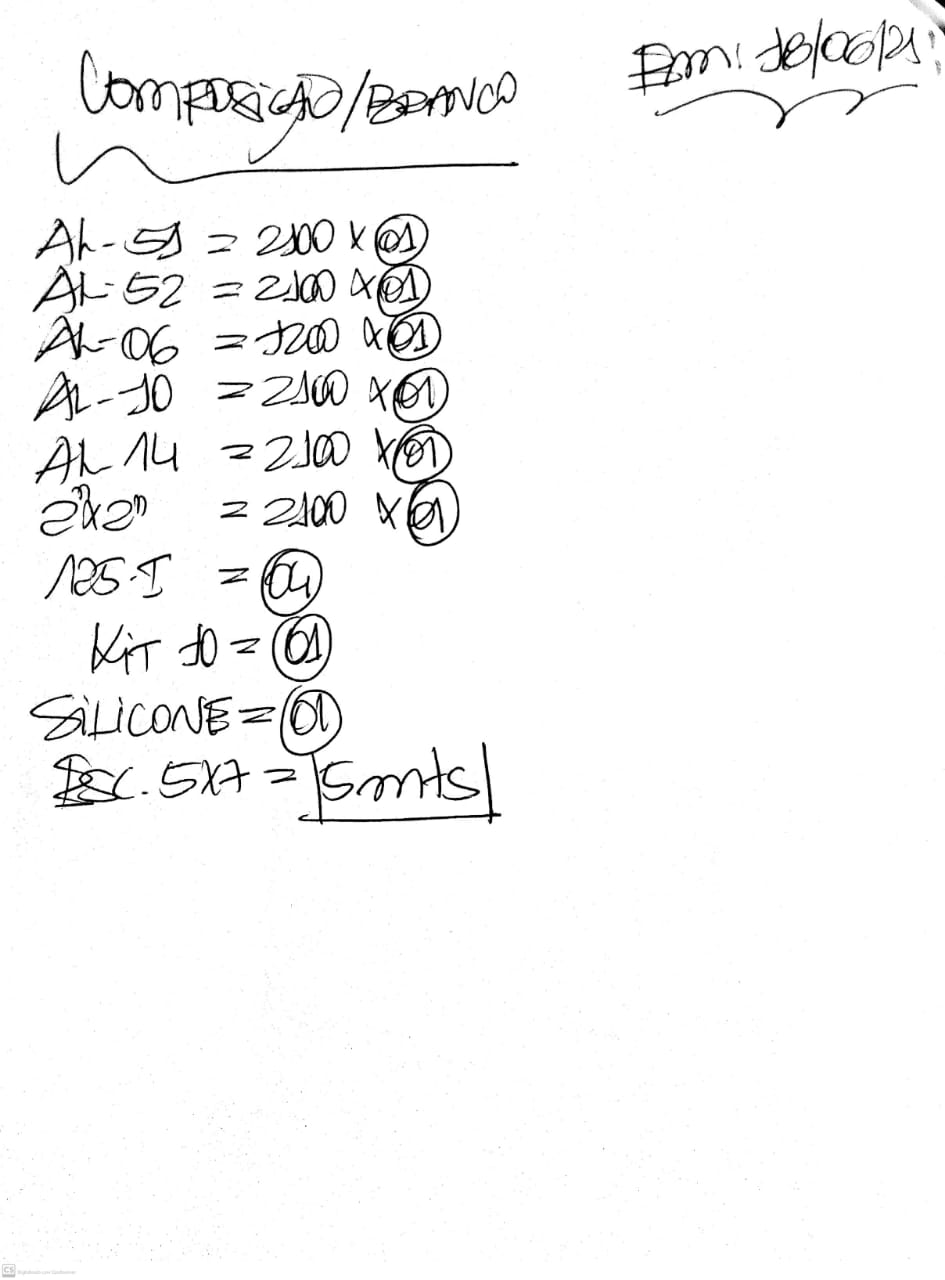 Em: 18/06/21:
COMPOSIÇÃO/BRANCO
AL-51 = 2100 x 01
AL-52 = 2100 x 01
AL-06 = 1200 x 01
AL-10 = 2100 x 01
AL 14 = 2100 x 01
2"x2" = 2100 x 01
125-I = 04
KiT 10 = 01
SiLiCONE = 01
ESC. 5x7 = 5mts
CS